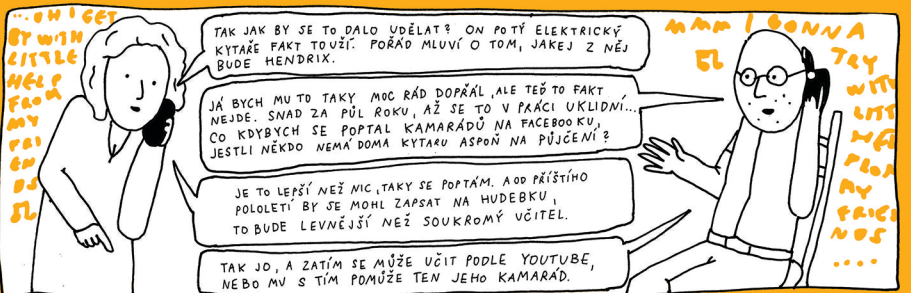 ...OH I GET
BY WITH
LITTLE
HELP
FROM
MY
FRI
EN
DS
TAK JAK BY SE TO DALO UDĚLAT? ON PO TÝ ELEKTRICKÝ
KYTAŘE FAKT TOUŽÍ. POŘÁD MLUVÍ O TOM, JAKEJ Z NĚJ
BUDE HENDRIX.
JÁ BYCH MU TO TAKY MOC RÁD DOPŘÁL, ALE TEĎ TO FAKT
NEJDE. SNAD ZA PŮL ROKU, AŽ SE TO V PRÁCI UKLIDNÍ...
CO KDYBYCH SE POPTAL KAMARÁDŮ NA FACEBOOKU,
JESTLI NĚKDO NEMÁ DOMA KYTARU ASPOŇ NA PŮJČENÍ?
JE TO LEPŠÍ NEŽ NIC, TAKY SE POPTÁM. A OD PŘÍŠTÍHO
POLOLETÍ BY SE MOHL ZAPSAT NA HUDEBKU,
TO BUDE LEVNĚJŠÍ NEŽ SOUKROMÝ UČITEL.
TAK JO, A ZATÍM SE MŮŽE UČIT PODLE YOUTUBE,
NEBO MU S TÍM POMŮŽE TEN JEHO KAMARÁD.
MMM I GONNA
TRY
WITH
LITT
HEL
PLOM
MY
FRIE
NDS
....